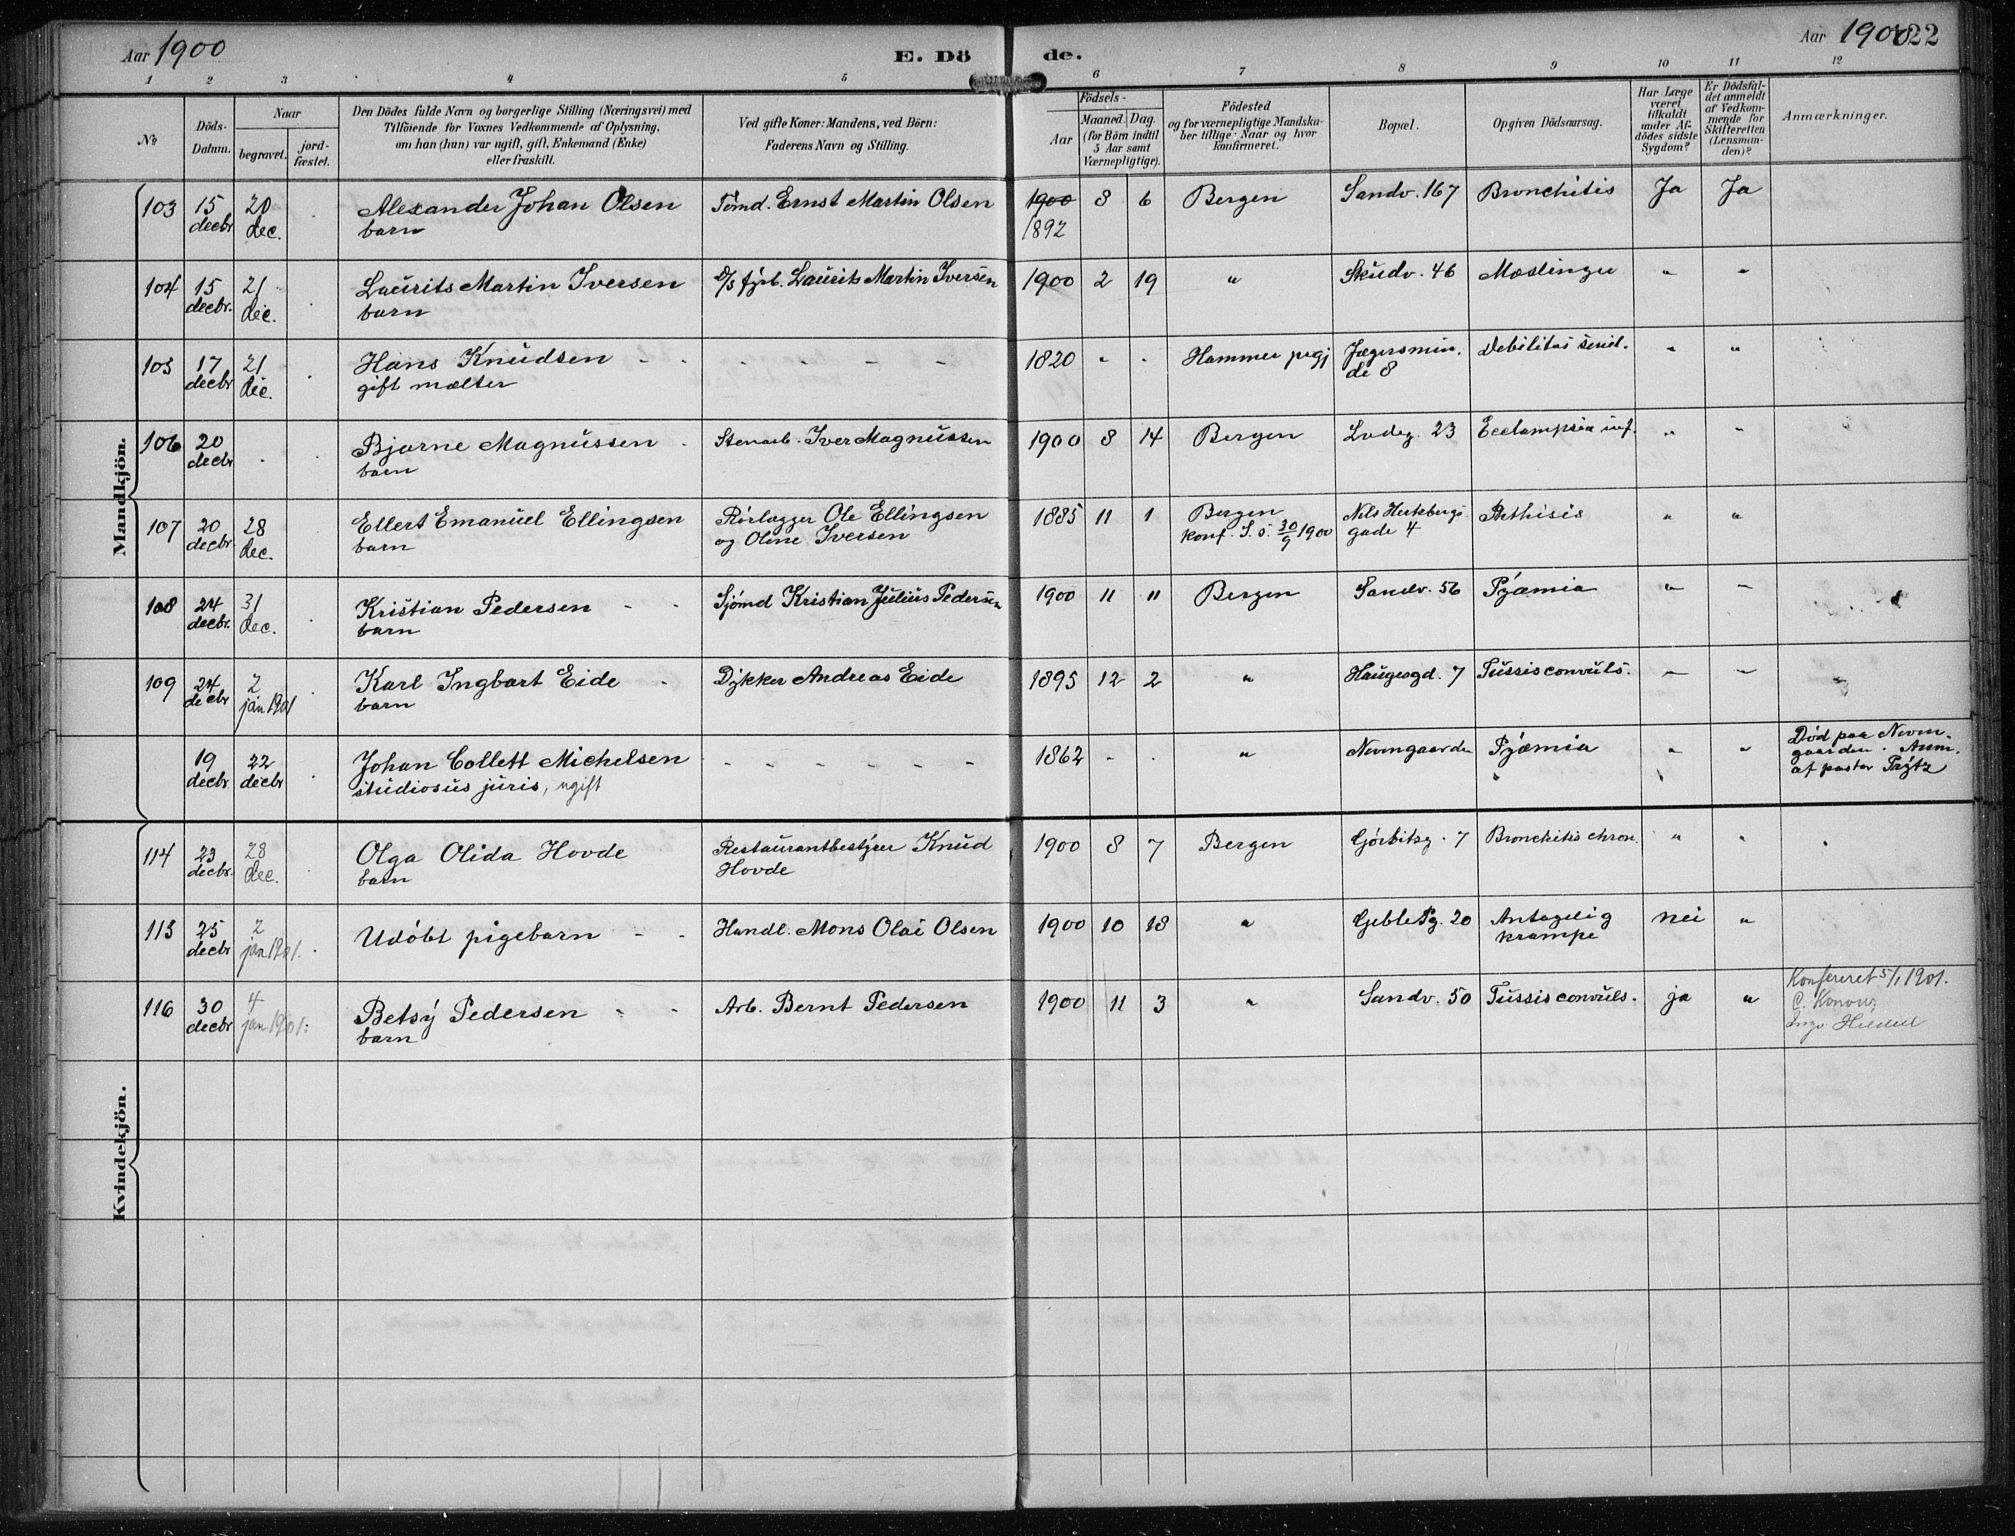 Aar 1900
E. Dö
de.
Aar 1900
122
1 2 3 4 5 6 7 8 9 10 11 12
No
Döds-Datum.
Naar
begravet.
jord-fæstet.
Den Dödes fulde Navn og borgerlige Stilling (Næringsvei) med
Tilföiende for Voxnes Vedkommende af Oplysning,
om han (hun) var ugift, gift, Enkemand (Enke)
eller fraskilt.
Ved gifte Koner: Mandens, ved Börn:
Faderens Navn og Stilling.
Födsels-
Aar
Maaned. Dag.
(for Börn indtil
5 Aar samt
Værnepligtige).
Födested
og for værnepligtige Mandska-
ber tillige: Naar og hvor
konfirmeret.
Bopæl.
Opgiven Dödsaarsag.
Har Læge
været
tilkaldt
under Af-
dödes sidste
Sygdom?
Er Dödsfal-
det anmeldt
af Vedkom-
mende for
Skifteretten
(Lensman-
den)?
Anmærkninger.
Mandkjön.
103 15 decbr 20 dec. Alexander Johan Olsen Tömd. Ernst Martin Olsen 1900 8 6 Bergen Sandv. 167 Bronchitis Ja Ja
barn 1892
104 15 decbr. 21 dec. Laurits Martin Iversen D/s fyrb. Laurits Martin Iversen 1900 2 19 " Skudv. 46 Mæslinger " "
barn
105 17 decbr 21 dec. Hans Knudsen - - - - - - - 1820 - - Hammer prgj Jægersmin. Debilitas senil. " "
gift mælter de 8
106 20 decbr Bjarne Magnussen Stenarb. Iver Magnussen 1900 8 14 Bergen Lodeg. 23 Ecclampsia inf. " "
barn
107 20 decbr. 28 dec. Ellert Emanuel Ellingsen Rörlægger Ole Ellingsen 1885 11 1 Bergen Nils Hertzbergs Phthisis " "
barn og Oline Iversen konf. S. s. 30/9 1900 gade 4
108 24 decbr. 31 dec. Kristian Pedersen - - Sjömd Kristian Julius Pedersen 1900 11 " Bergen Sandv. 56 Pyæmia " "
barn
109 24 decbr 2 jan 1901 Karl Ingbart Eide - Dykker Andreas Eide 1895 12 2 " Haugesgd. 7 Tussis convuls. " "
barn
19 decbr. 22 decbr Johan Collett Michelsen - - - - - - 1862 - - " Nevengaarden Pyæmia " " Död paa Neven-
studiosus juris, ugift gaarden. Anm.
af pastor Prytz
Kvindekjön.
114 23 decbr. 28 dec. Olga Olida Hovde Restaurantbestyrer Knud 1900 8 7 Bergen Gjörbitsg. 7 Bronchitis chron. " "
barn Hovde
115 25 decbr 2 jan 1901. Udöbt pigebarn - - Handl. Mons Olai Olsen 1900 10 18 " Geble Pg. 20 Antagelig nei "
krampe
116 30 decbr 4 jan 1901. Betsy Pedersen - - Arb. Bernt Pedersen 1900 11 3 " Sandv. 50 Tussis convuls. ja " Konfereret 5/1 1901.
barn C. Konow.